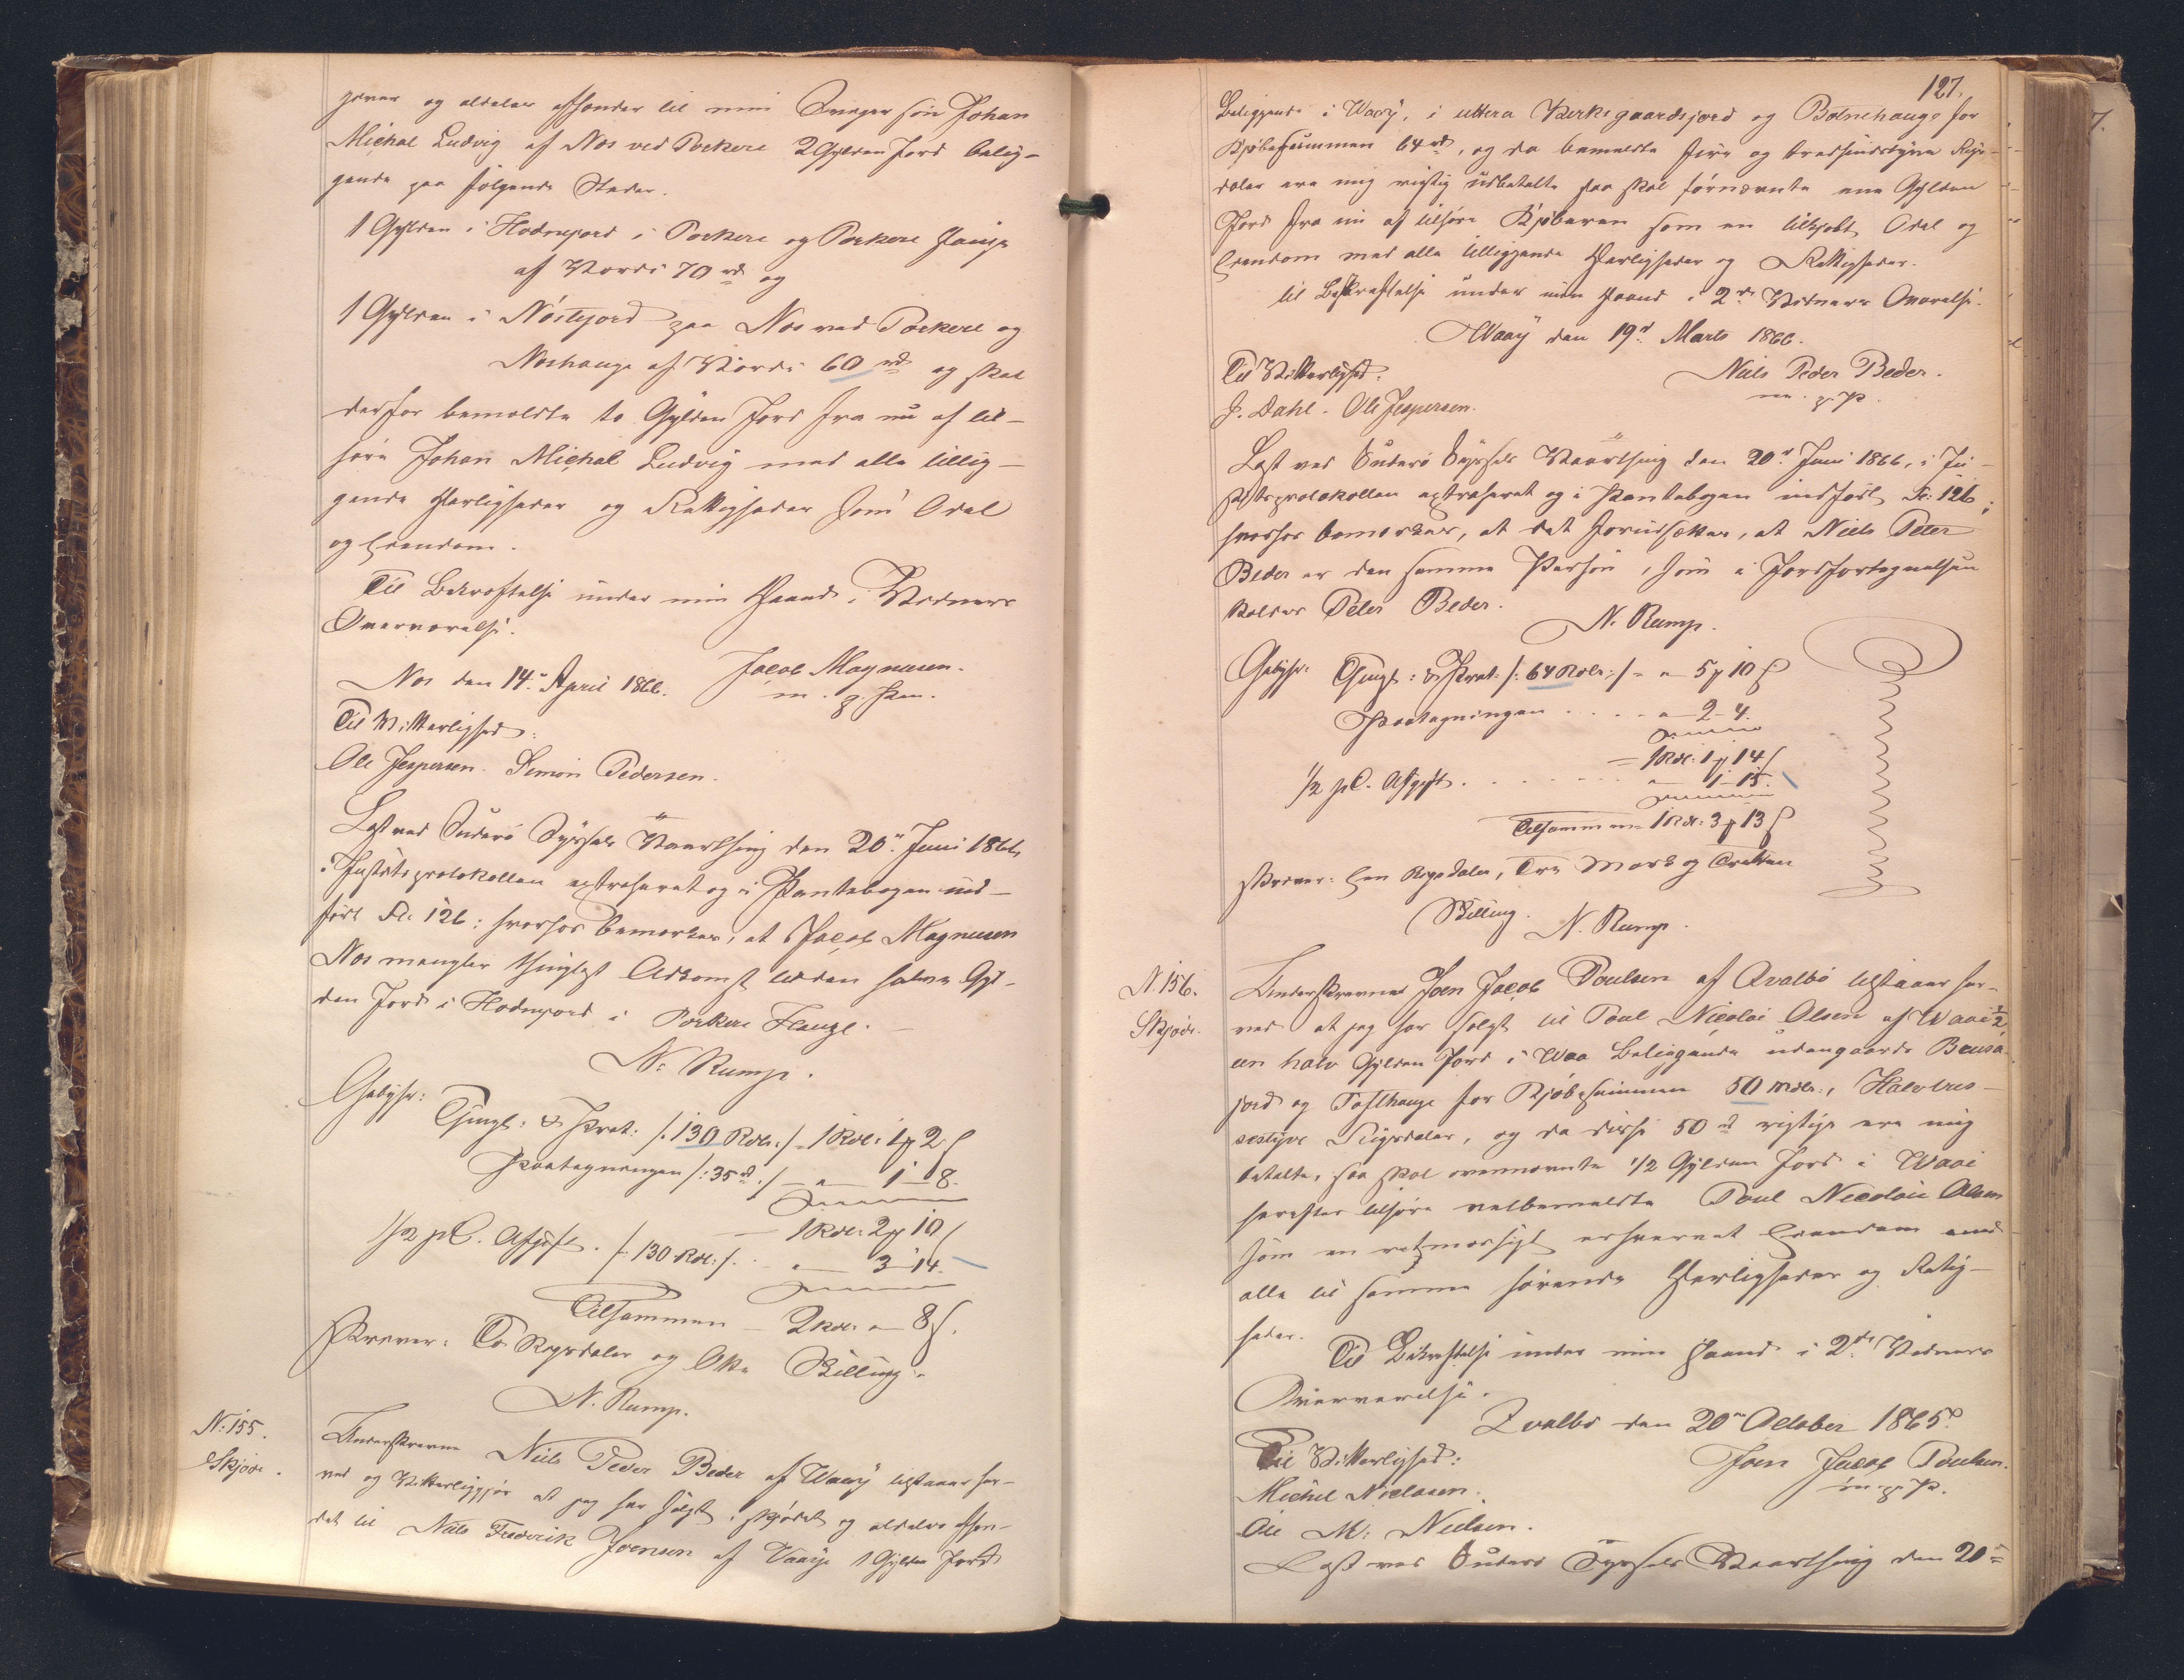 giver og aldeles afhænder til min Svoger Søn Johan
Michal Ludvig af Nos ved Porkere 2 Gylden Jord belig-
gende paa følgende Steder.
1 Gylden i Hodnejord i Porkere og Porkere Hauge
af Værdi 70 rd og
1 Gylden i Nóstejord paa Nos ved Porkere og
Noshauge af Værdi 60 rd og skal
derfor bemeldte to Gylden Jord fra nu af til-
høre Johan Michal Ludvig med alle tillig-
gende Herligheder og Rettigheder som Odel
og Eiendom.
Til Bekræftelse under min Haand i Vidners
Overværelse.
Nos den 14de April 1866. Jacob Magnusen.
m. p. Pen.
Til Vitterlighed:
Ole Jespersen. Simon Pedersen.
Læst ved Suderø Syssels Vaarthing den 20de Juni 1866,
i Justitsprotokollen extraheret og i Pantebogen ind-
ført Fol. 126; hvorhos bemærkes, at Jacob Magnusen
Nos mangler thinglyst Adkomst til den halve Gyl-
den Jord i Hodnejord i Porkere Hauge.
N. Rump.
Gebyhr:
Thingl: & Prot: /: 130 Rdlr :/ - 1 Rdl: 1 ℳ 2 ß
Paategningen /: 35 rd :/ - " - 1 - 8.
1 Rdl: 2 ℳ 10 ß
1/2 pC. Afgift. /: 130 Rdl: /. " - 3 - 14.
Tilsammen - 2 Rdl: " - 8 ß.
skriver: To Rigsdaler og Otte Skilling.
N. Rump.
N: 155.
Skjøde.
Underskrevne Niels Peder Beder af Waaij tilstaaer her-
ved og vitterliggjør at jeg har solgt, skjødet og aldeles afhæn-
det til Niels Frederik Joensen af Vaaije 1 Gylden Jord
127.
Beliggende i Waaÿ, i uttera Kirkegaardsjord og Botnehauge for
Kjøbesummen 64 rd, og da bemeldte fire og tredsindstyve Rigs-
daler ere mig rigtig udbetalte saa skal førnævnte ene Gylden
Jord fra nu af tilhøre Kjøberen som en tilkjøbt Odel og
Eiendom med alle tilliggende Herligheder og Rettigheder.
til Bekræftelse under min Haand i 2de Vidners Overværelse.
Waaÿ den 19d Marts 1866.
Til Vitterlighed: Niels Peder Beder.
J. Dahl. Ole Jespersen. m. p. P.
Læst ved Suderø Syssels Vaarthing den 20d Juni 1866, i Ju-
stitsprotokollen extraheret og i Pantebogen indført Fol: 126;
hvorhos bemærkes, at det forudsættes, at Niels Peter
Beder er den samme Person, som i Jordfortegnelsen
kaldes Peter Beder.
N. Rump.
Gebyhr: Thingl: & Prot: /: 64 Rdlr: /- " - 5 ℳ 10 ß
Paategningen . . . . " - 2 - 4.
- 1 Rdl: 1 ℳ 14 ß
1/2 pC. Afgift . . . . " 1 - 15.
Tilsammen 1 Rdl: 3 ℳ 13 ß
skriver: Een Rigsdaler, Tre Mark og Tretten
Skilling. N. Rump.
N. 156.
Skjøde.
Underskrevne Joen Jacob Poulsen af Qvalbø tilstaaer her-
ved at jeg har solgt til Poul Nicolai Olsen af Waai 1/2,
een halv Gylden Jord i Waa Beliggende udengaards
jord og Tofthauge for Kjøbesummen 50 Rdlr., Halvtred-
sestyve Rigsdaler, og da disse 50 rd rigtige ere mig
betalte, saa skal ovennævnte 1/2 Gylden Jord i Waai
herefter tilhøre velbemeldte Poul Nicolai Olsen
som en retmæssigt erhvervet Eiendom med
alle til samme hørende Herligheder og Rettig-
heder.
Til Bekræftelse under min Haand i 2de Vidners
Overværelse.
Qvalbø den 20de October 1865.
Til Vitterlighed: Joen Jacob Poulsen.
Michel Nielasen. m. p. P.
Ole M: Nielsen.
Læst ved Suderø Syssels Vaarthing den 20de